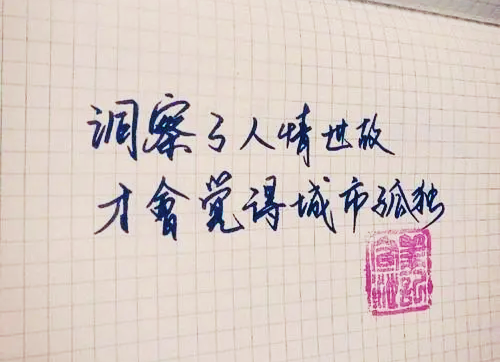 洞察了人情世故
才會觉得城市孤独